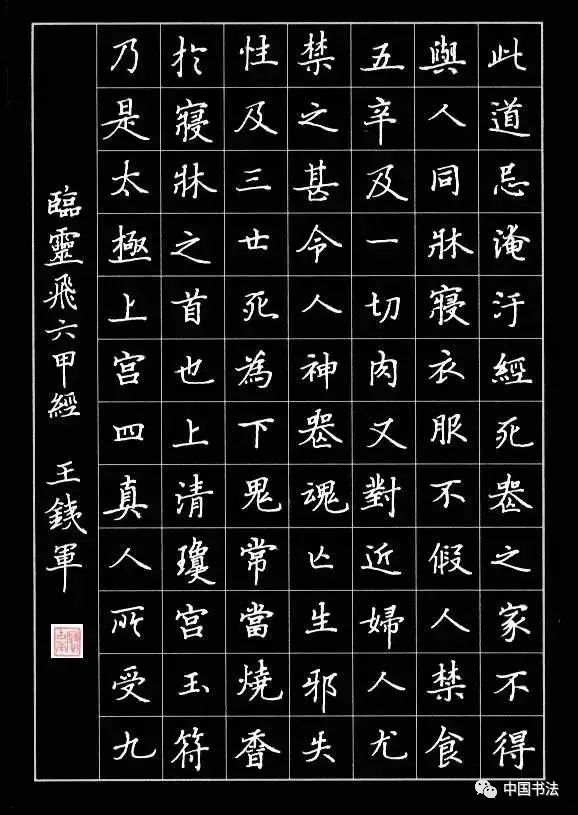 此道忌淹汙經死喪之家不得
與人同牀寢衣服不假人禁食
五辛及一切肉又對近婦人尤
禁之甚令人神喪魂亡生邪失
性及三世死為下鬼常當燒香
於寢牀之首也上清瓊宮玉符
乃是太極上宮四真人所受九
臨靈飛六甲經 王鐵軍
中国书法